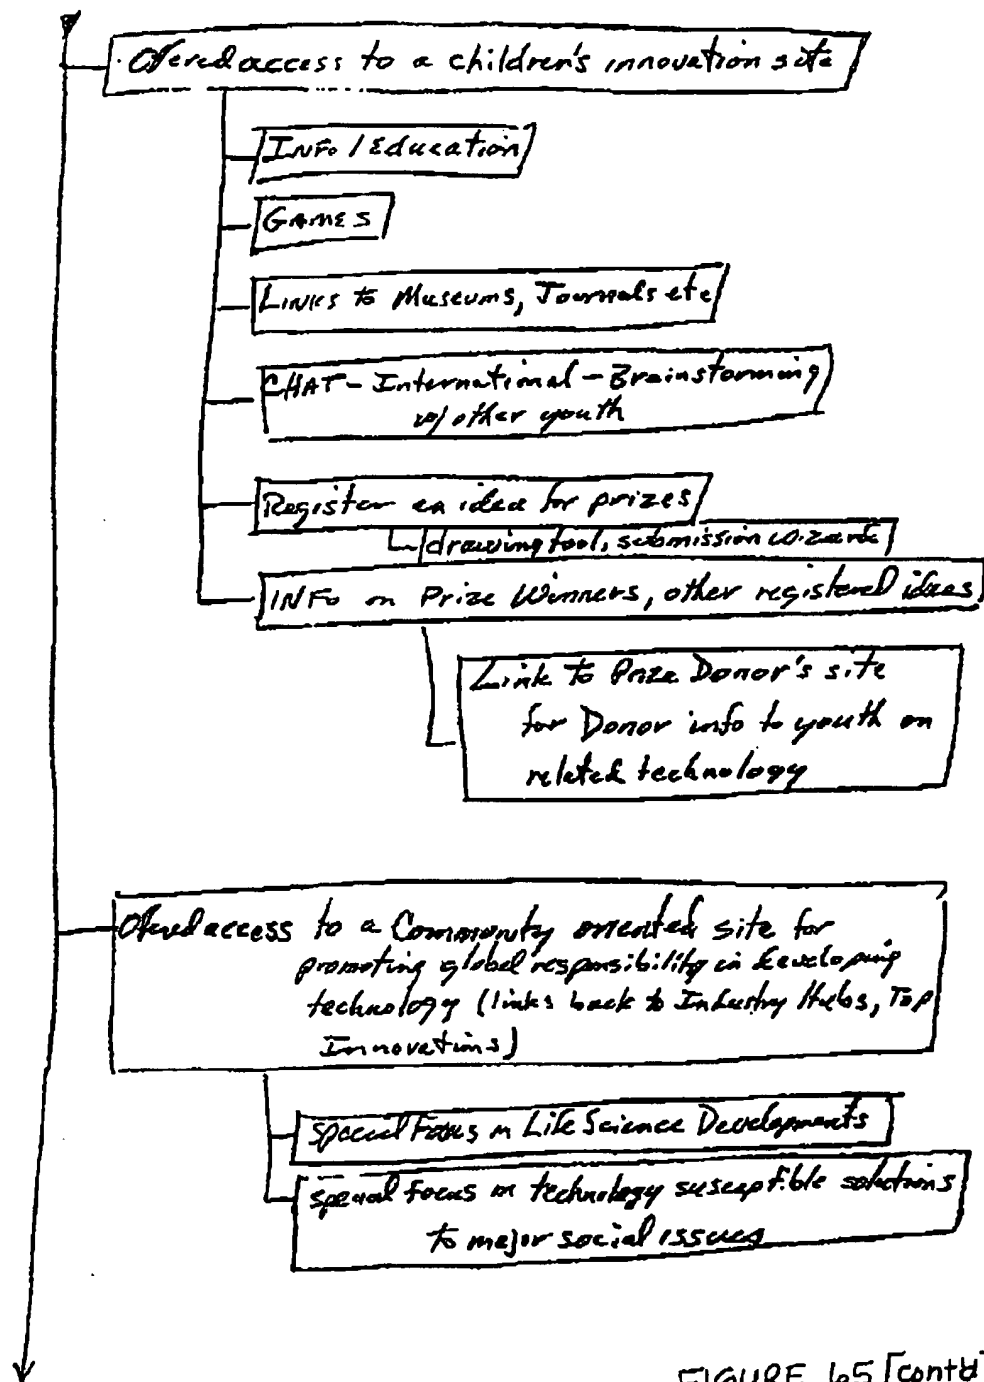 Offered access to a children's innovation site
INFO / Education
GAMES
LINKS to Museums, Journals etc
CHAT - International - Brainstorming
w/ other youth
Register an idea for prizes
drawing tool, submission wizards
INFO on Prize Winners, other registered ideas
Link to Prize Donor's site
for Donor info to youth on
related technology
Offered access to a Community oriented site for
promoting global responsibility in developing
technology (links back to Industry Hubs, Top
Innovations)
special Focus on Life Science Developments
special Focus on technology susceptible solutions
to major social issues
FIGURE 65 [cont'd]